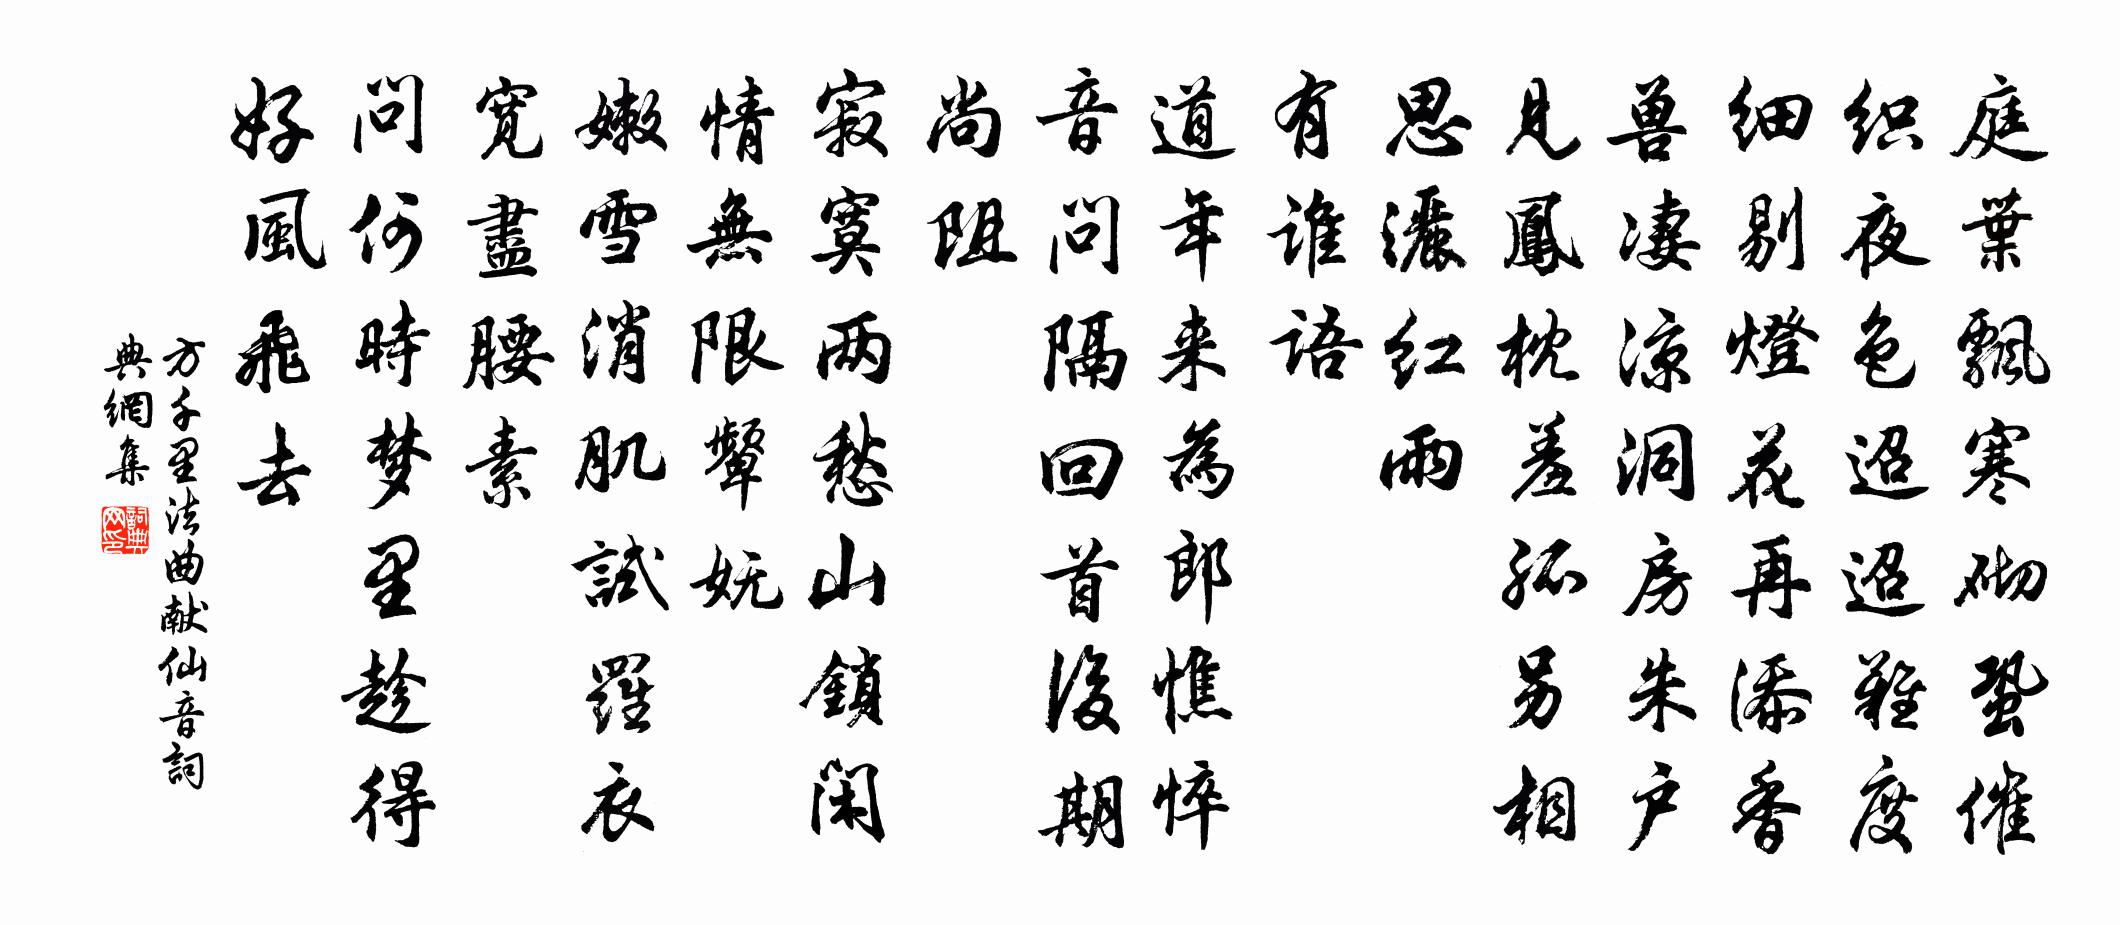 庭葉飄寒砌蛩催
织夜色迢迢難度
细剔燈花再添香
兽凄凉洞房朱户
見鳳枕羞孤另相
思灑红雨
有谁语
道年来為郎憔悴
音问隔回首後期
尚阻
寂寞两愁山鎖闲
情無限顰妩
嫩雪消肌試羅衣
寛盡腰素
问何時梦里趁得
好風飛去
方千里法曲献仙音詞
典網集
詞典网印